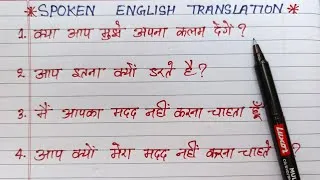 *SPOKEN ENGLISH TRANSLATION*
1. क्या आप मुझे अपना कलम देगें?
2. आप इतना क्यों डरते है?
3. मैं आपका मदद नहीं करना चाहता हूँ
4. आप क्यों मेरा मदद नहीं करना चाहते ?
Luxor